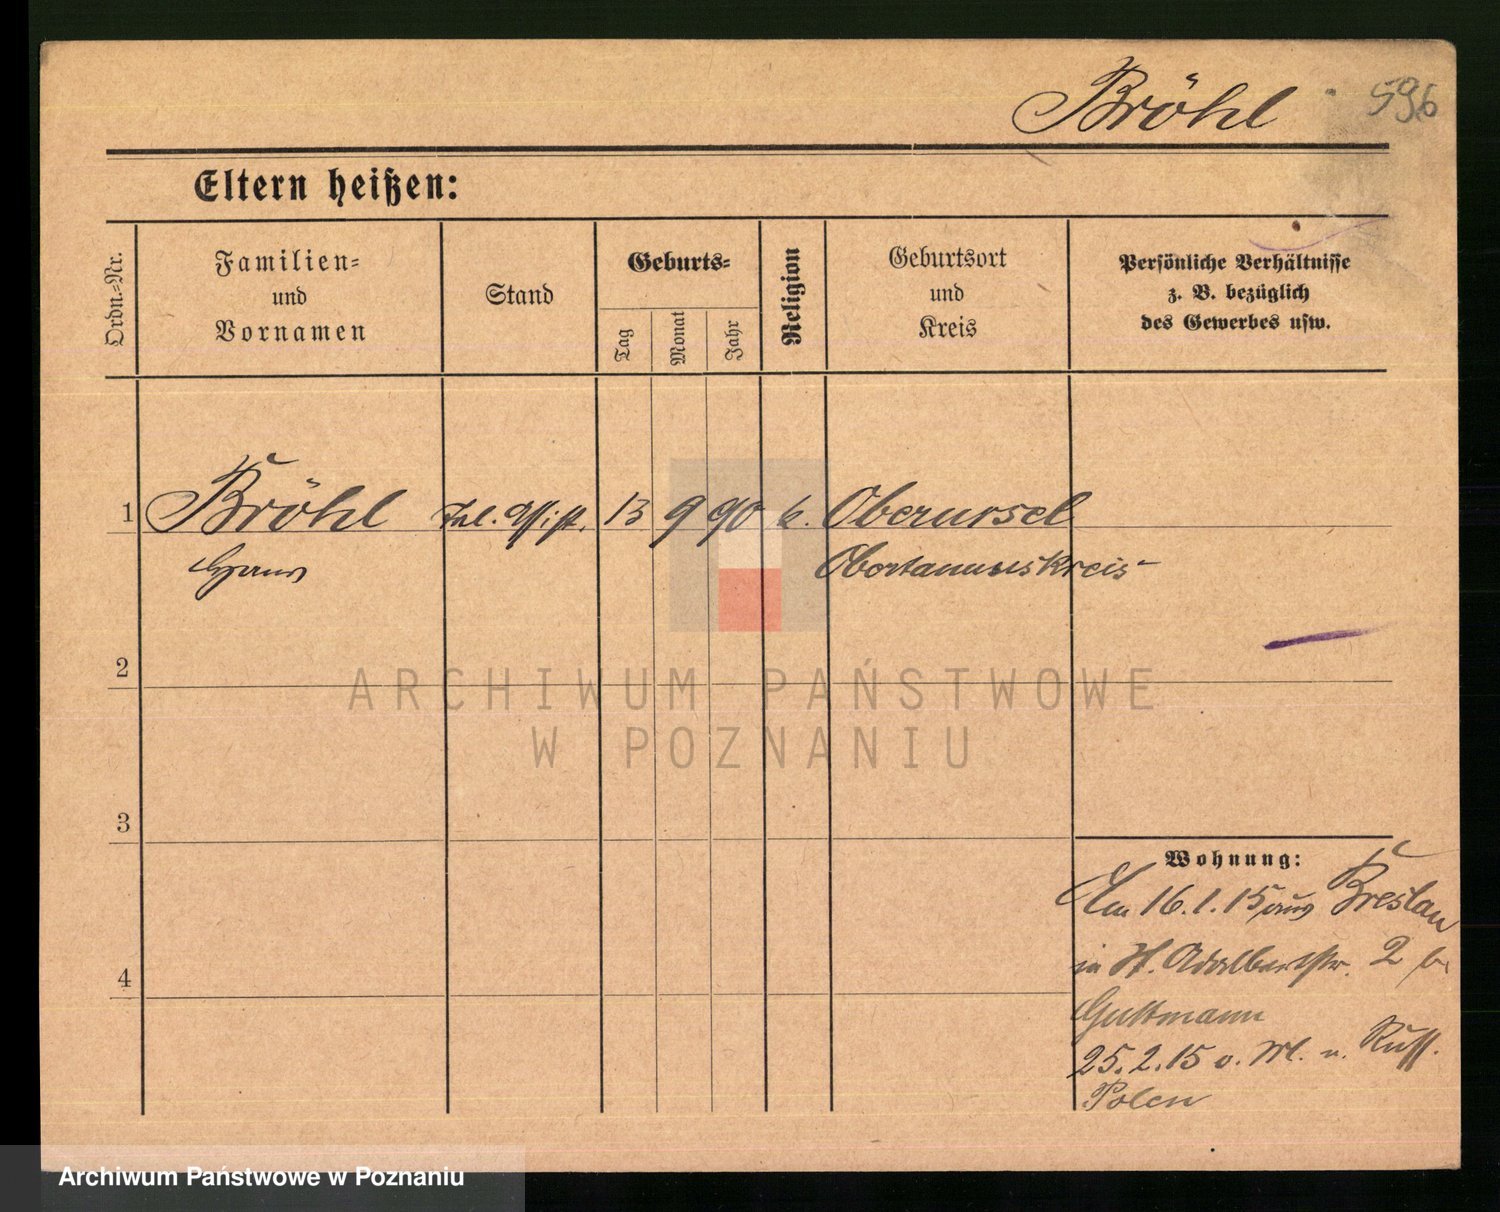 Bröhl 596
Eltern heißen:
Ordn.-Nr.
Familien- und Vornamen
Stand
Geburts-
Tag
Monat
Jahr
Religion
Geburtsort und Kreis
Persönliche Verhältnisse
z. B. bezüglich
des Gewerbes usw.
1 Bröhl Tel. Assist. 13 9 90 k. Oberursel
Hans Obertaunuskreis
2
3
4
Wohnung:
Am 16.1.15 aus Breslau
in H. Adalbertstr. 2 b.
Guttmann
25.2.15 o. Ml. n. Russ.
Polen
ARCHIWUM PAŃSTWOWE
W POZNANIU
Archiwum Państwowe w Poznaniu